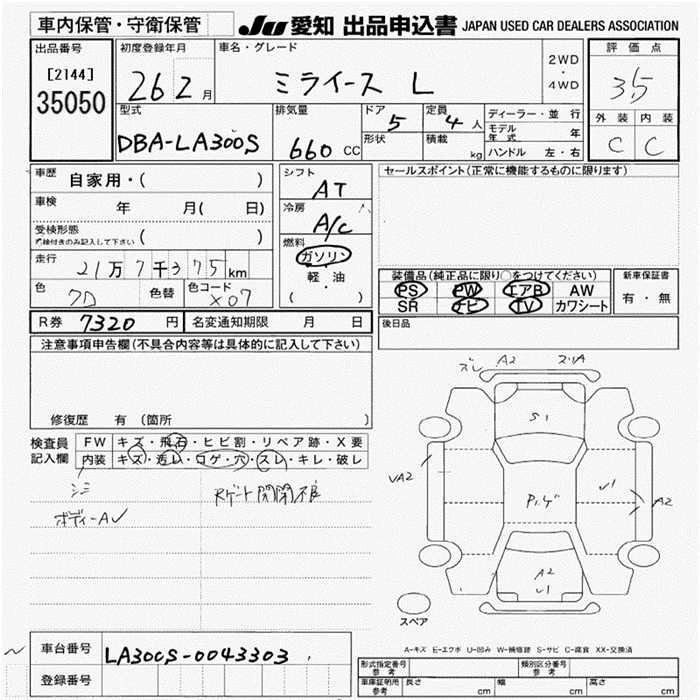 車内保管・守衛保管
JU 愛知 出品申込書 JAPAN USED CAR DEALERS ASSOCIATION
出品番号
[2144]
35050
初度登録年月
26 2 月
車名・グレード
ミライース L
2WD
・
4WD
評価点
3.5
外装 内装
C C
型式
DBA-LA300S
排気量
660 CC
ドア
5
形状
定員
4 人
積載
kg
ディーラー・並行
モデル年式 年
ハンドル 左・右
車歴 自家用・( )
車検 年 月( 日)
受検形態
( )
走行 21万7千375km
色 色替 色コード X07
シフト
AT
冷房
A/C
燃料
ガソリン
・
軽・油
( )
セールスポイント(正常に機能するものに限ります)
装備品(純正品に限り○をつけてください)
PS PW エアB AW
SR ナビ TV カワシート
新車保証書
有・無
後日品
R券 7320 円 名変通知期限 月 日
注意事項申告欄(不具合内容等は具体的に記入して下さい)
修復歴 有 (箇所 )
検査員記入欄
FW キズ・飛石・ヒビ割・リペア跡・X要
内装 キズ・汚レ・コゲ・穴・スレ・キレ・破レ
シミ
ボディーAU
Rゲート開閉不良
ズレ A2 スリA
S1
VA2
U1
A2
A2
U1
スペア
A-キズ E-エクボ U-凹み W-補修跡 S-サビ C-腐食 XX-交換済
車台番号 LA300S-0043303
登録番号
形式指定番号
参考
類別区分番号
参考
車庫証明用
参考
長さ cm 幅 cm 高さ cm